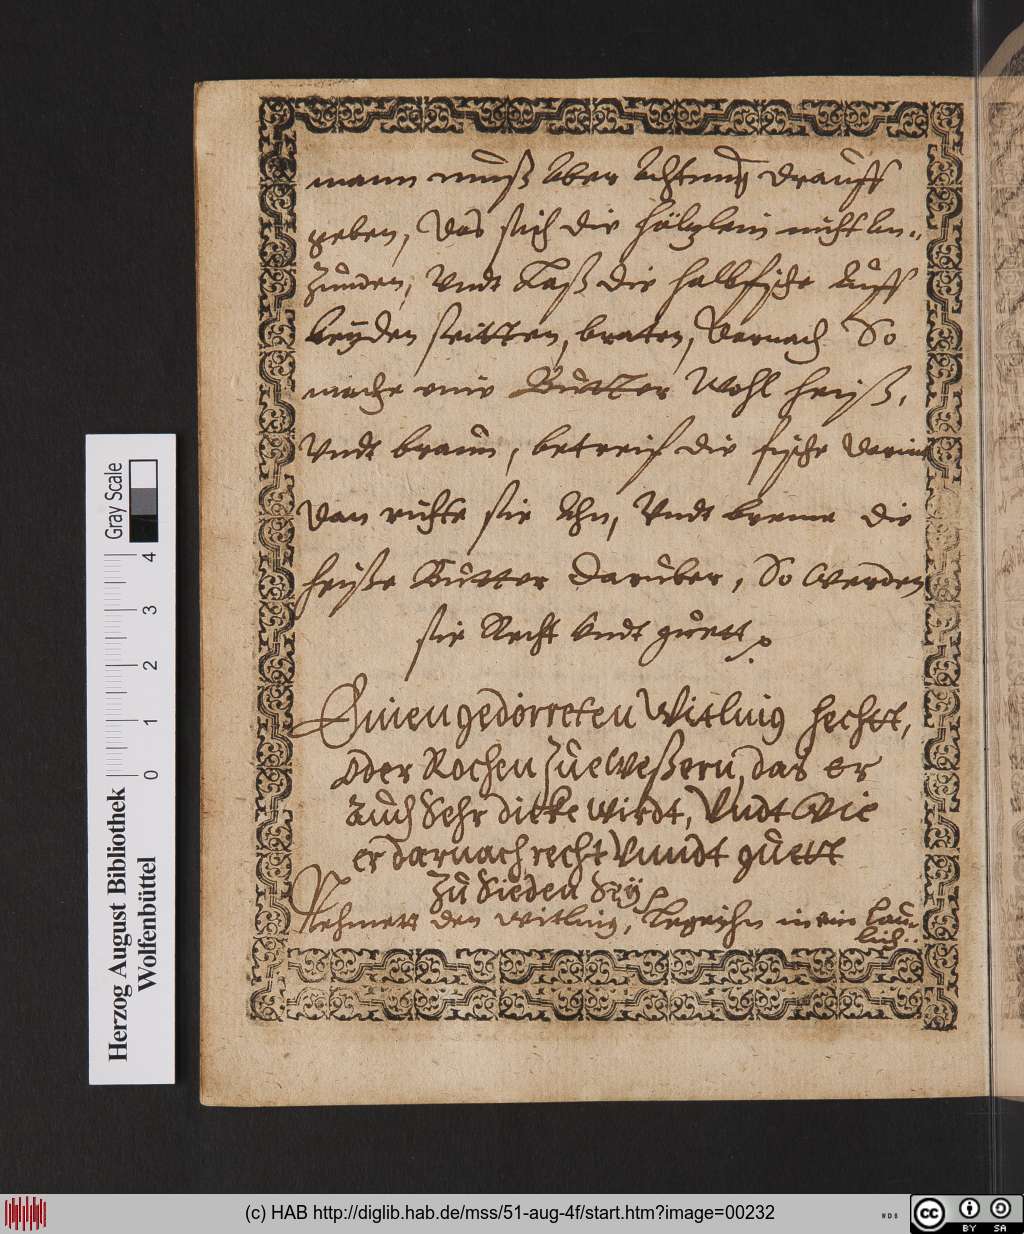 mann muß aber Achtung drauff
geben, das sich die höltzlein nicht an-
zünden, Vndt Laß die halbfische auff
beyden seitten, braten, Darnach So
mache eine Butter Wohl heiß,
Vndt braun, betreif die fische darin
Dan richte sie Ahn, Vndt brenne die
heiße Butter darüber, So Werden
sie Recht Vndt guett.
Einen gedörreten Witling hechtt,
oder Rochen Zue Weßern, das er
Auch Sehr dicke Wirdt, Vndt Wie
er darnach recht Vnndt guettt
Zu Sieden Sey
Nehmett den Witling, Legt ihn in ein Lau-
lich..
Herzog August Bibliothek
Wolfenbüttel
Gray Scale
0 1 2 3 4
(c) HAB http://diglib.hab.de/mss/51-aug-4f/start.htm?image=00232
WDB
cc BY SA